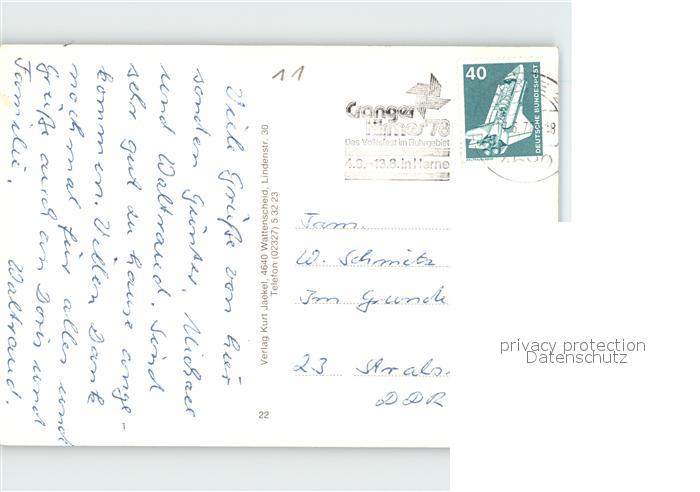 11
Viele Grüße von hier
senden Günter, Michael
und Waltraud. Sind
sehr gut zu hause ange-
kommen. Villen Dank
nochmal für alles und
Grüße auch an Doris und
Familie. Waltraud.
Verlag Kurt Jaekel, 4640 Wattenscheid, Lindenstr. 30
Telefon (02327) 5 32 23
22
Cranger
Kirmes '78
Das Volksfest im Ruhrgebiet
4.8.-13.8. in Herne
40
DEUTSCHE BUNDESPOST
Fam.
W. Schmitz
Im Grunde
23 Strals
DDR
privacy protection
Datenschutz